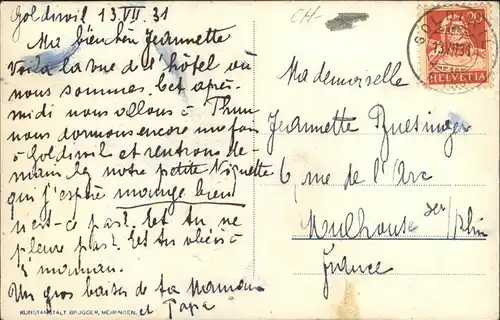 Goldiwil 13 VII 31
Ma bien chère Jeannette
Voilà la vue de l'hôtel où
nous sommes. Cet après-
midi nous allons à Thun
nous dormons encore une fois
à Goldiwil et rentrons de-
main chez notre petite
qui j'espère mange bien
n'est-ce pas? Et tu ne
pleure pas? Et tu obéis
à maman.
Un gros baiser de ta Maman
et Papa
KUNSTANSTALT BRÜGGER, MEIRINGEN.
CH-
20
HELVETIA
Mademoiselle
Jeannette
6, rue de l'Arc
Mulhouse s/Rhin
France